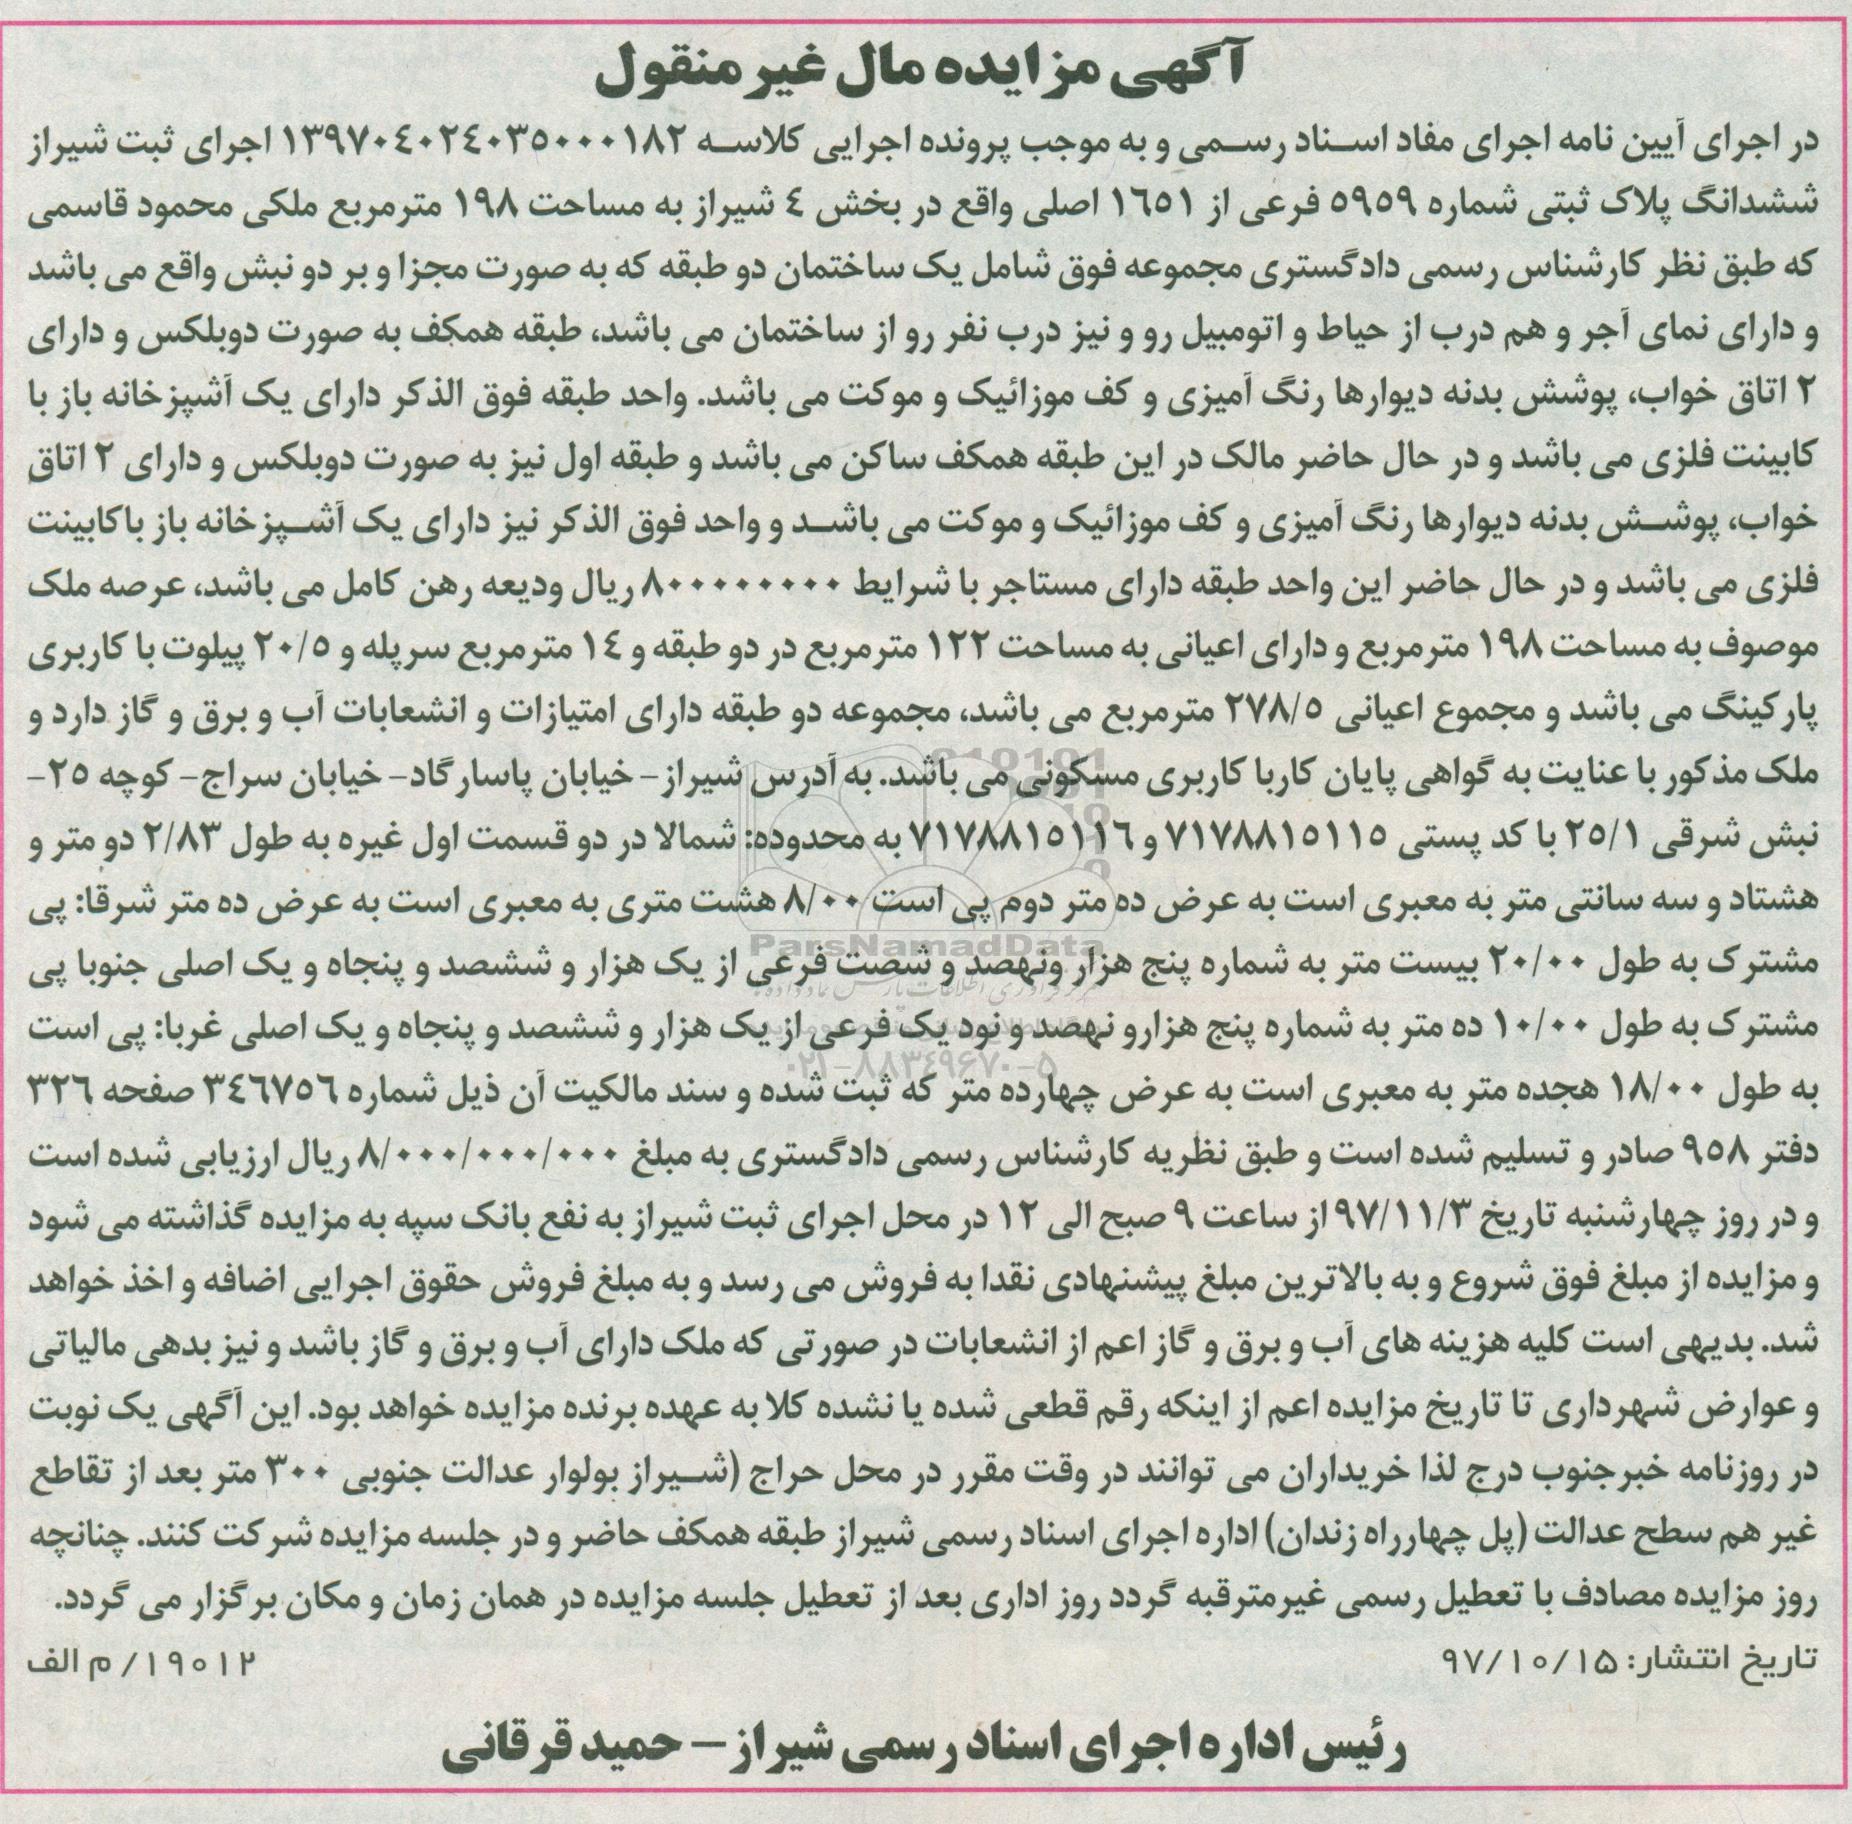 آگهی مزایده مال غیر منقول
در اجرای آیین نامه اجرای مفاد اسناد رسمی و به موجب پرونده اجرایی کلاسه ۱۳۹۷۰۴۰۲۴۰۳۵۰۰۰۱۸۲ اجرای ثبت شیراز
ششدانگ پلاک ثبتی شماره ۵۹۵۹ فرعی از ۱۶۵۱ اصلی واقع در بخش ۴ شیراز به مساحت ۱۹۸ مترمربع ملکی محمود قاسمی
که طبق نظر کارشناس رسمی دادگستری مجموعه فوق شامل یک ساختمان دو طبقه که به صورت مجزا و بر دو نبش واقع می باشد
و دارای نمای آجر و هم درب از حیاط و اتومبیل رو و نیز درب نفر رو از ساختمان می باشد، طبقه همکف به صورت دوبلکس و دارای
۲ اتاق خواب، پوشش بدنه دیوارها رنگ آمیزی و کف موزائیک و موکت می باشد. واحد طبقه فوق الذکر دارای یک آشپزخانه باز با
کابینت فلزی می باشد و در حال حاضر مالک در این طبقه همکف ساکن می باشد و طبقه اول نیز به صورت دوبلکس و دارای ۲ اتاق
خواب، پوشش بدنه دیوارها رنگ آمیزی و کف موزائیک و موکت می باشد و واحد فوق الذکر نیز دارای یک آشپزخانه باز باکابینت
فلزی می باشد و در حال حاضر این واحد طبقه دارای مستاجر با شرایط ۸۰۰۰۰۰۰۰۰ ریال ودیعه رهن کامل می باشد، عرصه ملک
موصوف به مساحت ۱۹۸ مترمربع و دارای اعیانی به مساحت ۱۲۲ مترمربع در دو طبقه و ۱۴ مترمربع سرپله و ۲۰/۵ پیلوت با کاربری
پارکینگ می باشد و مجموع اعیانی ۲۷۸/۵ مترمربع می باشد، مجموعه دو طبقه دارای امتیازات و انشعابات آب و برق و گاز دارد و
ملک مذکور با عنایت به گواهی پایان کاربا کاربری مسکونی می باشد. به آدرس شیراز- خیابان پاسارگاد- خیابان سراج- کوچه ۲۵-
نبش شرقی ۲۵/۱ با کد پستی ۷۱۷۸۸۱۵۱۱۵ و ۷۱۷۸۸۱۵۱۱۶ به محدوده: شمالا در دو قسمت اول غیره به طول ۲/۸۳ دو متر و
هشتاد و سه سانتی متر به معبری است به عرض ده متر دوم پی است ۸/۰۰ هشت متری به معبری است به عرض ده متر شرقا: پی
مشترک به طول ۲۰/۰۰ بیست متر به شماره پنج هزار ونهصد و شصت فرعی از یک هزار و ششصد و پنجاه و یک اصلی جنوبا پی
مشترک به طول ۱۰/۰۰ ده متر به شماره پنج هزارو نهصد و نود یک فرعی از یک هزار و ششصد و پنجاه و یک اصلی غربا: پی است
به طول ۱۸/۰۰ هجده متر به معبری است به عرض چهارده متر که ثبت شده و سند مالکیت آن ذیل شماره ۳۴۶۷۵۶ صفحه ۳۲۶
دفتر ۹۵۸ صادر و تسلیم شده است و طبق نظریه کارشناس رسمی دادگستری به مبلغ ۸/۰۰۰/۰۰۰/۰۰۰ ریال ارزیابی شده است
و در روز چهارشنبه تاریخ ۹۷/۱۱/۳ از ساعت ۹ صبح الی ۱۲ در محل اجرای ثبت شیراز به نفع بانک سپه به مزایده گذاشته می شود
و مزایده از مبلغ فوق شروع و به بالاترین مبلغ پیشنهادی نقدا به فروش می رسد و به مبلغ فروش حقوق اجرایی اضافه و اخذ خواهد
شد. بدیهی است کلیه هزینه های آب و برق و گاز اعم از انشعابات در صورتی که ملک دارای آب و برق و گاز باشد و نیز بدهی مالیاتی
و عوارض شهرداری تا تاریخ مزایده اعم از اینکه رقم قطعی شده یا نشده کلا به عهده برنده مزایده خواهد بود. این آگهی یک نوبت
در روزنامه خبرجنوب درج لذا خریداران می توانند در وقت مقرر در محل حراج (شیراز بولوار عدالت جنوبی ۳۰۰ متر بعد از تقاطع
غیر هم سطح عدالت (پل چهارراه زندان) اداره اجرای اسناد رسمی شیراز طبقه همکف حاضر و در جلسه مزایده شرکت کنند. چنانچه
روز مزایده مصادف با تعطیل رسمی غیرمترقبه گردد روز اداری بعد از تعطیل جلسه مزایده در همان زمان و مکان برگزار می گردد.
تاریخ انتشار: ۹۷/۱۰/۱۵ ۱۹۰۱۲/ م الف
رئیس اداره اجرای اسناد رسمی شیراز – حمید قرقانی
ParsNamadData
۰۲۱-۸۸۳۴۹۶۷۰-۵